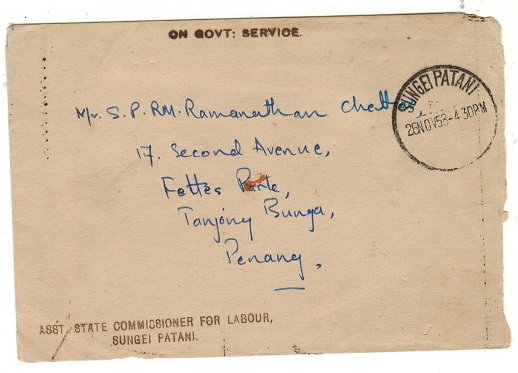 ON GOVT: SERVICE.
SUNGEI PATANI
26NOV58-4 30PM
Mr. S. P. RM. Ramanathan Chettiar,
17. Second Avenue,
Fettes Park,
Tanjong Bunga,
Penang,
ASST. STATE COMMISSIONER FOR LABOUR,
SUNGEI PATANI.